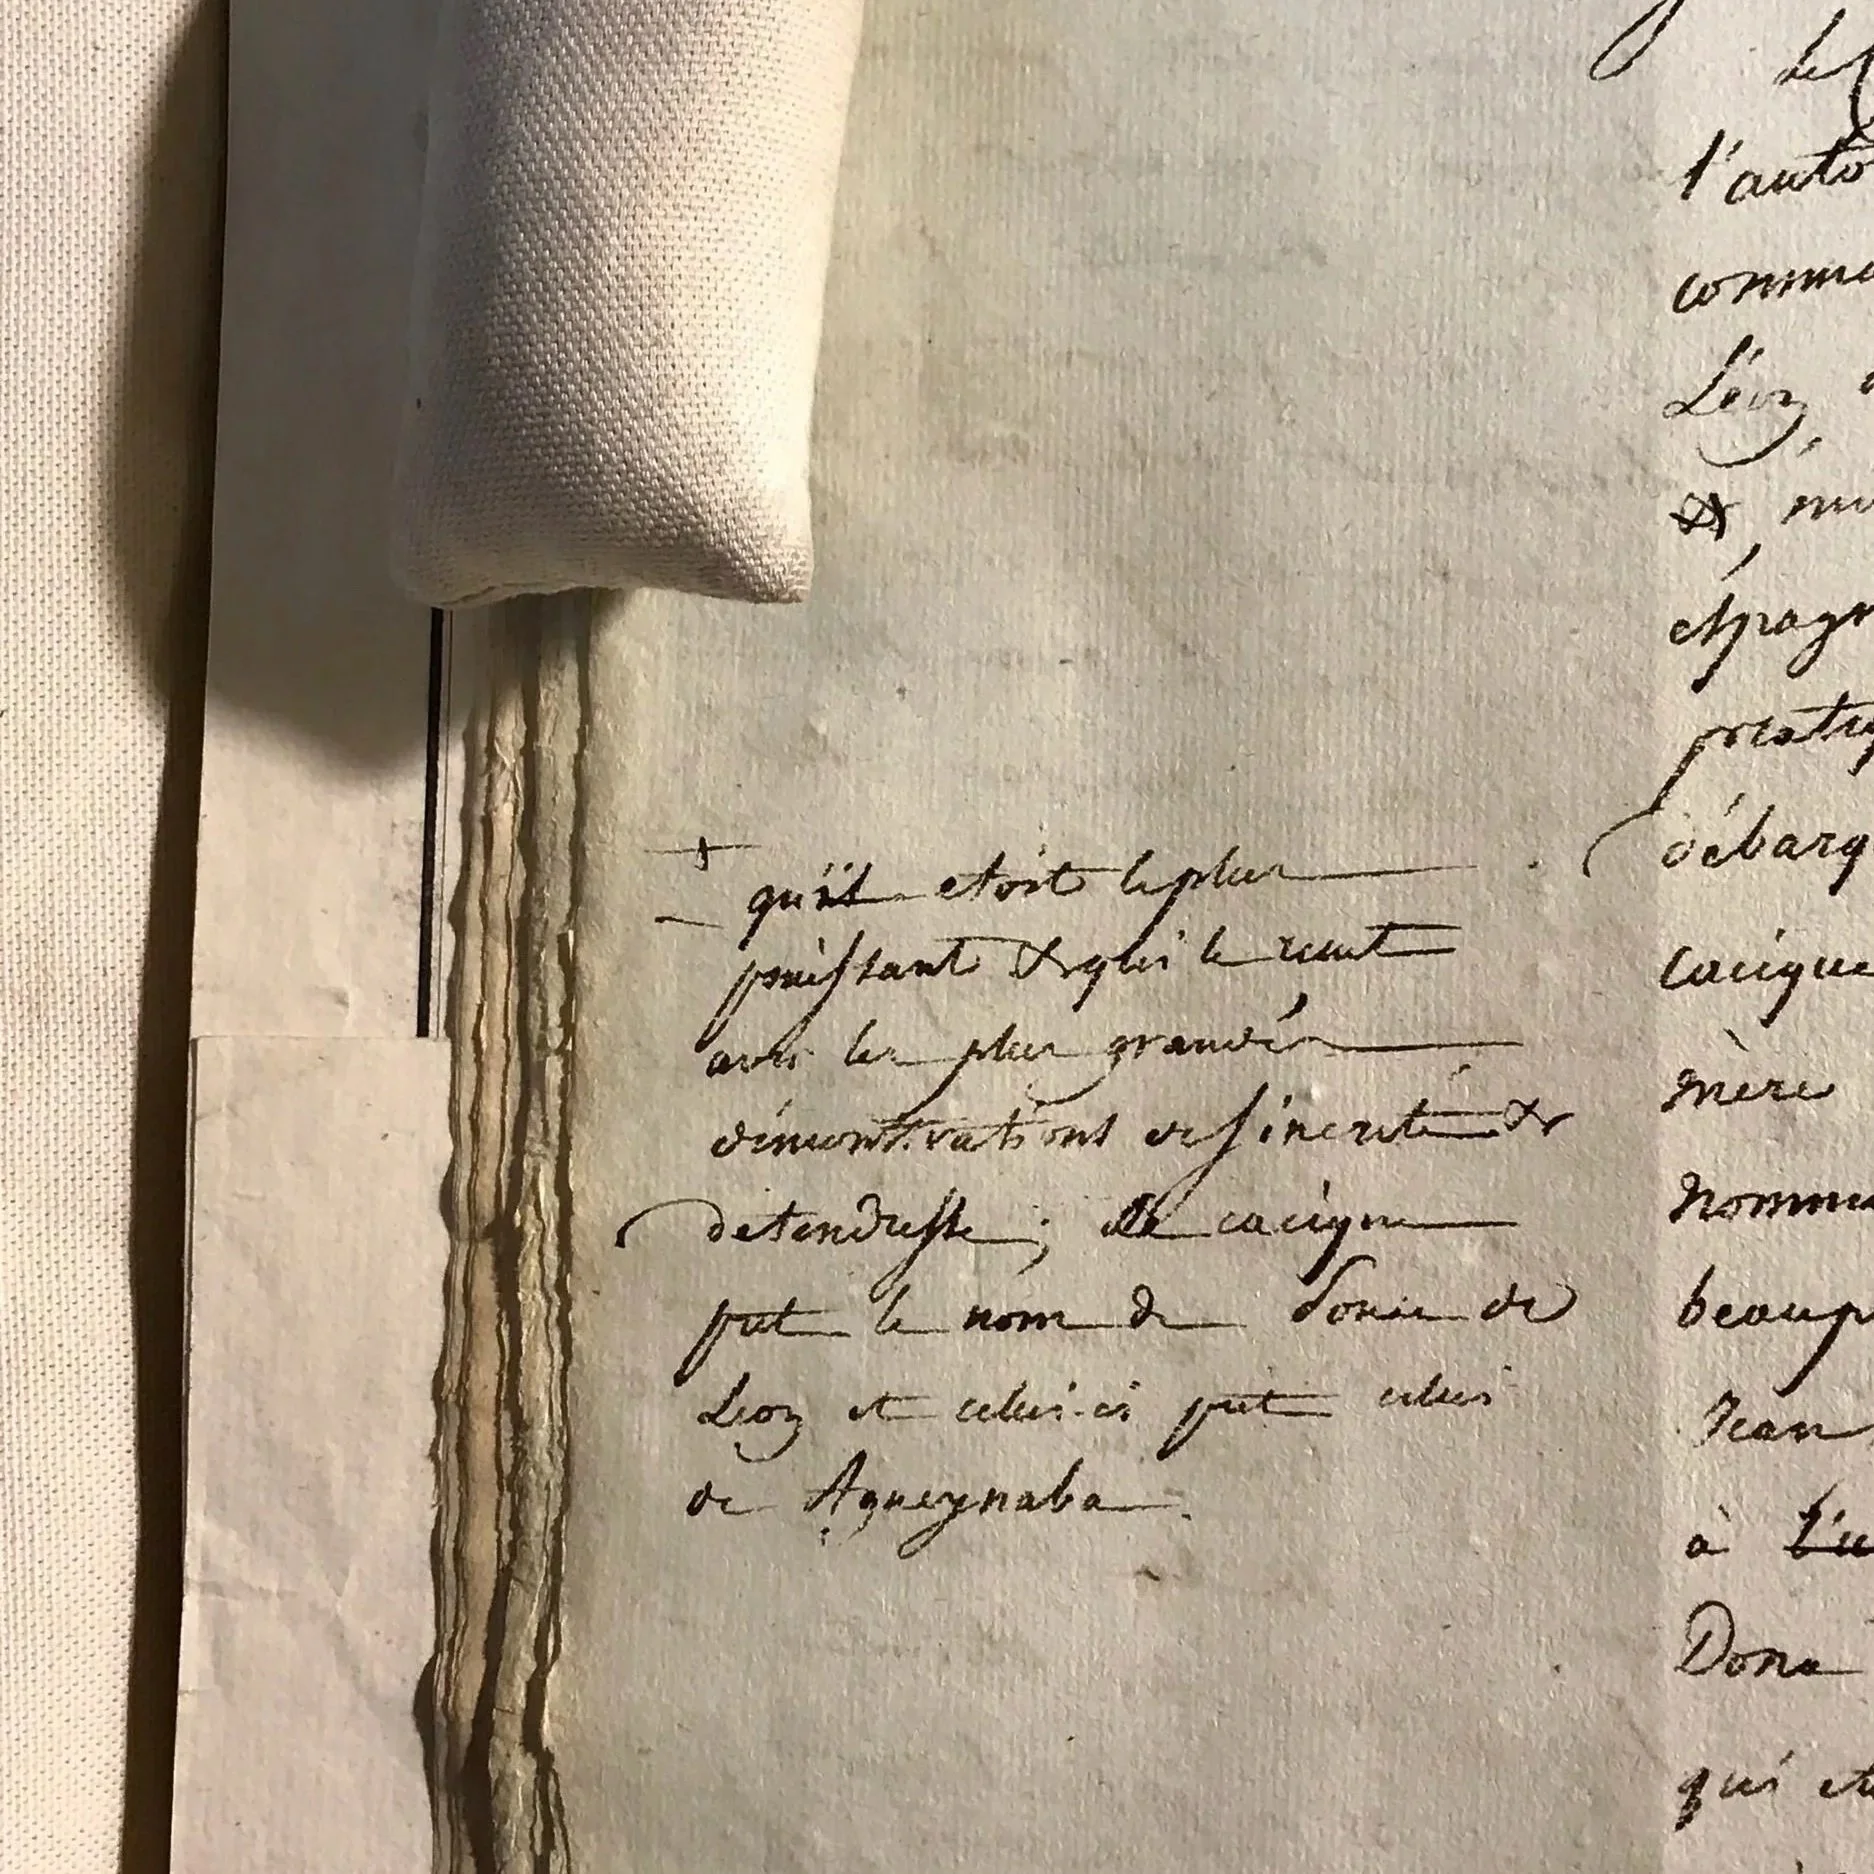 + qu'il etoit le plus
puissant & qui le reçut
avec les plus grandes
démonstrations de sincerité &
de tendresse; le cacique
prit le nom de Ponce de
Leon et celui-ci prit celui
de Agueynaba.
l'auto
comme
Léon
&
espagn
débarq
cacique
mère
nomme
beaup
Jean
à
Dona
qui